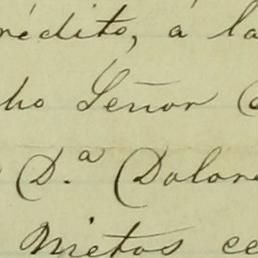 rédito, á la
ho Señor
D.ª Dolor
Nietos ce